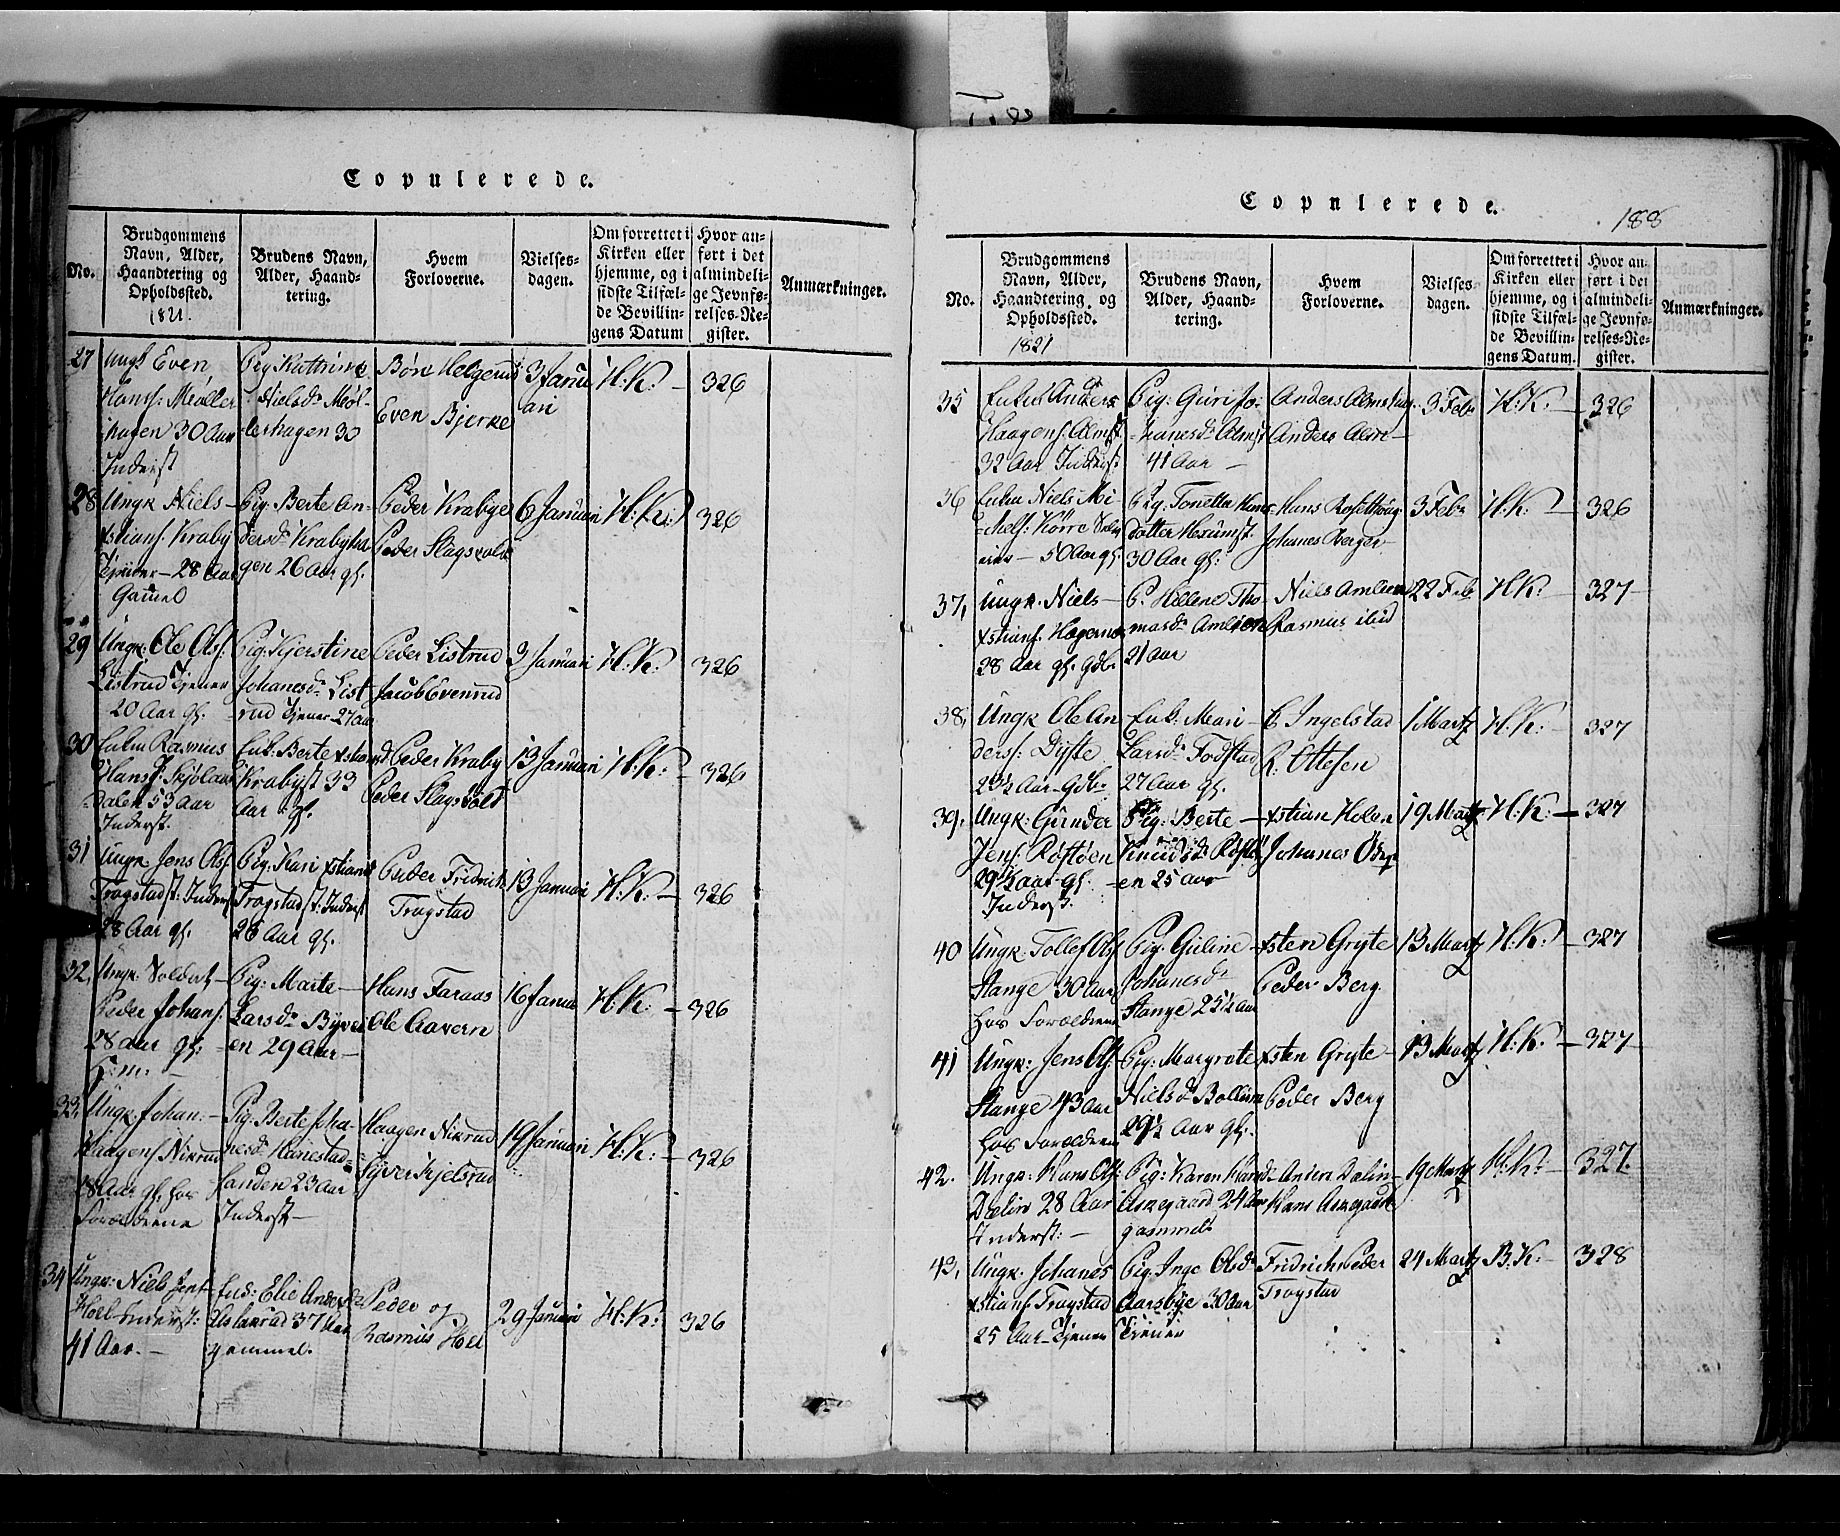 Copulerede.
No.
Brudgommens
Navn, Alder,
Haandtering og
Opholdssted.
1821.
Brudens Navn,
Alder, Haand-
tering.
Hvem
Forloverne.
Vielses-
dagen.
Om forrettet i
Kirken eller
hjemme, og i
sidste Tilfæl-
de Bevillin-
gens Datum
Hvor an-
ført i det
almindeli-
ge Jevnfø-
relses-Re-
gister.
Anmærkninger.
27
Ungk Even
Hans: Møller
hagen 30 Aar
Inderst
Pig Kattrine
Nielsd: Møl-
lerhagen 30
Børe Helgerud
Even Bjerke
3 Janu
ari
H:K: –
326
28
Ungk Niels –
xstians: Kraby
Tjener – 28 Aar
Gamel
Pig: Berte An-
dersd: Krabyha
gen 26 Aar gl.
Peder Krabye
Peder Slagsvold
6 Januari
H:K:
326
29
Ungk: Ole Ols:
Listrud Tjener
20 Aar gl.
Pig: Kjerstine
Johanesd: List
rud Tjener 27 aar
Peder Listrud
Jacob Evenrud
3 Januari
H:K:
326
30
Enkm Rasmus
Hans: Skjølaas
dalen 53 Aar
Inderst.
Enk: Berte xstians
Krabyst 33
Aar gl.
Peder Kraby
Peder Slagsvold
13 Januari
H:K: –
326
31
Ungk: Jens Ols:
Trogstadst: Inderst
28 Aar gl.
Pig: Kari xstiansd
Trogstadst: Inderst
26 Aar gl.
Peder Fridrich
Trogstad
13 Januari
H:K: –
326
32,
Ungk: Soldat –
Peder Johans:
28 aar gl:
Pig: Marte –
Larsd: Byver
en 29 Aar –
Hans Faraas
Ole Aavern
16 Janu
H:K: –
326
33,
Ungk: Johan –
Haagens Nikrud
28 Aar gl. hos
Forældrene
Pig: Berte Joha-
nesd: Hanestad-
hauden 23 Aar
Inderst –
Haagen Nikrud
Syver Kjelsrud
19 Januari
H:K: –
326
34
Ungk: Niels Jens
Hoel Inderst:
41 Aar. –
End: Elie Andersd
Aslaxrud 37 Aar
gammel.
Peder og
Rasmus Hoel
29 Januari
H:K:
326
Copulerede.
188
No.
Brudgommens
Navn, Alder,
Haandtering og
Opholdssted.
1821
Brudens Navn,
Alder, Haand-
tering.
Hvem
Forloverne.
Vielses-
dagen.
Om forrettet i
Kirken eller
hjemme, og i
sidste Tilfæl-
de Bevillin-
gens Datum.
Hvor an-
ført i det
almindeli-
ge Jevnfø-
relses-Re-
gister.
Anmærkninger.
35
Enkm Anders
Haagens: Almst
32 Aar Inderst:
Pig: Guri Jo-
hanesd: Almst
41 Aar –
Anders Almshag
Anders Alm –
3 Feb:
H:K: –
326
36
Enkm Niels Mi-
chels: Kørre
50 Aar gl.
Pig: Tonetta Hans-
dotter Hexumst.
30 Aar gl:
Hans Rosethoug
Johanes Berger
3 Feb:
H:K: –
326
37,
Ungk: Niels –
xstians: Hagerno
28 Aar gl. gdb:
P. Hellene Tho-
masd: Amlien
21 Aar
Niels Amlien
Rasmus ibid
22 Feb
H:K: –
327
38,
Ungk Ole An
ders: Dyste
23½ Aar Gdb:
Enk: Mari –
Larsd: Todstad
27 Aar gl.
P. Ingelstad
R: Ottesen
1 Martz
H:K: –
327
39,
Ungk: Gunder
Jens: Røstøen
29½ aar gl.
Inderst.
Pig: Berte –
Knudsd: Røstø
en 25 aar
xstian Holen
Johanes Ødeg:
19 Martz
H:K: –
327
40
Ungk: Tollef Ols
Stange 30 Aar
hos Forældrene
Pig: Guline
Johanesd:
Stange 25½ Aar
xsten Gryte
Peder Berg
13 Martz
H:K: –
327
41
Ungk: Jens Ols:
Stange 43 Aar
hos Forældrene
Pig: Margrete
Nielsd: Bollum
29½ Aar gl:
xsten Gryte
Peder Berg
13 Martz
H:K: –
327
42.
Ungk: Hans Ols:
Dælin 28 Aar
Inderst: –
Pig: Karen Hansd:
Askegaard 24 Aar
gammel
Anders Dalin
Hans Askegaard
19 Martz
H:K: –
327.
43,
Ungk: Johanes
xstians: Trogstad
25 Aar – Tjener
Pig: Inge Olsd:
Aarsbye 30 Aar
Tjener
Fridrich Peder
Trogstad
24 Martz
B:K:
328